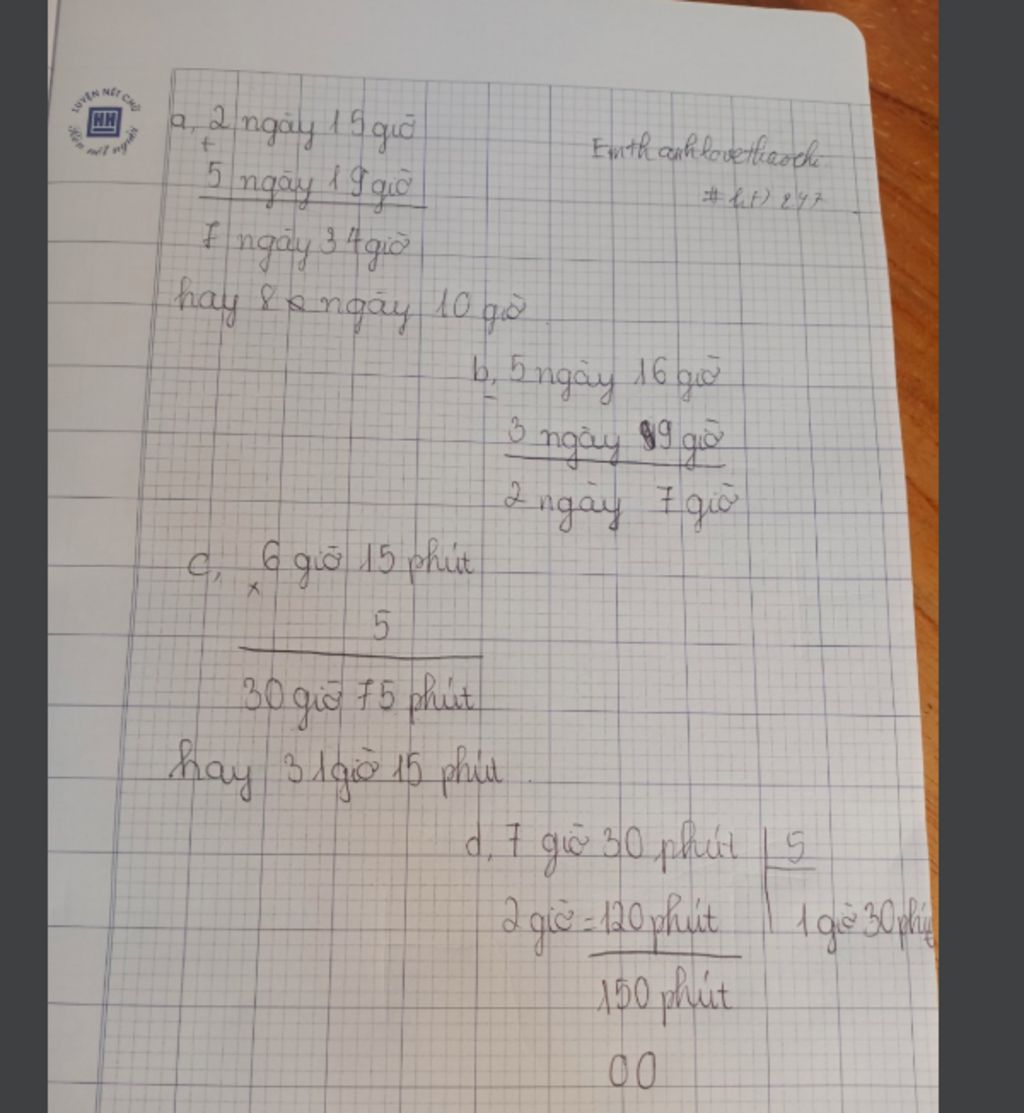 LUYỆN NÉT CHỮ
HH
Rèn nết người
a, 2 ngày 15 giờ
+
5 ngày 19 giờ
7 ngày 34 giờ
hay 8 ngày 10 giờ
b, 5 ngày 16 giờ
-
3 ngày 9 giờ
2 ngày 7 giờ
c, 6 giờ 15 phút
x
5
30 giờ 75 phút
hay 31 giờ 15 phút
d, 7 giờ 30 phút 5
2 giờ = 120 phút 1 giờ 30 phút
150 phút
00